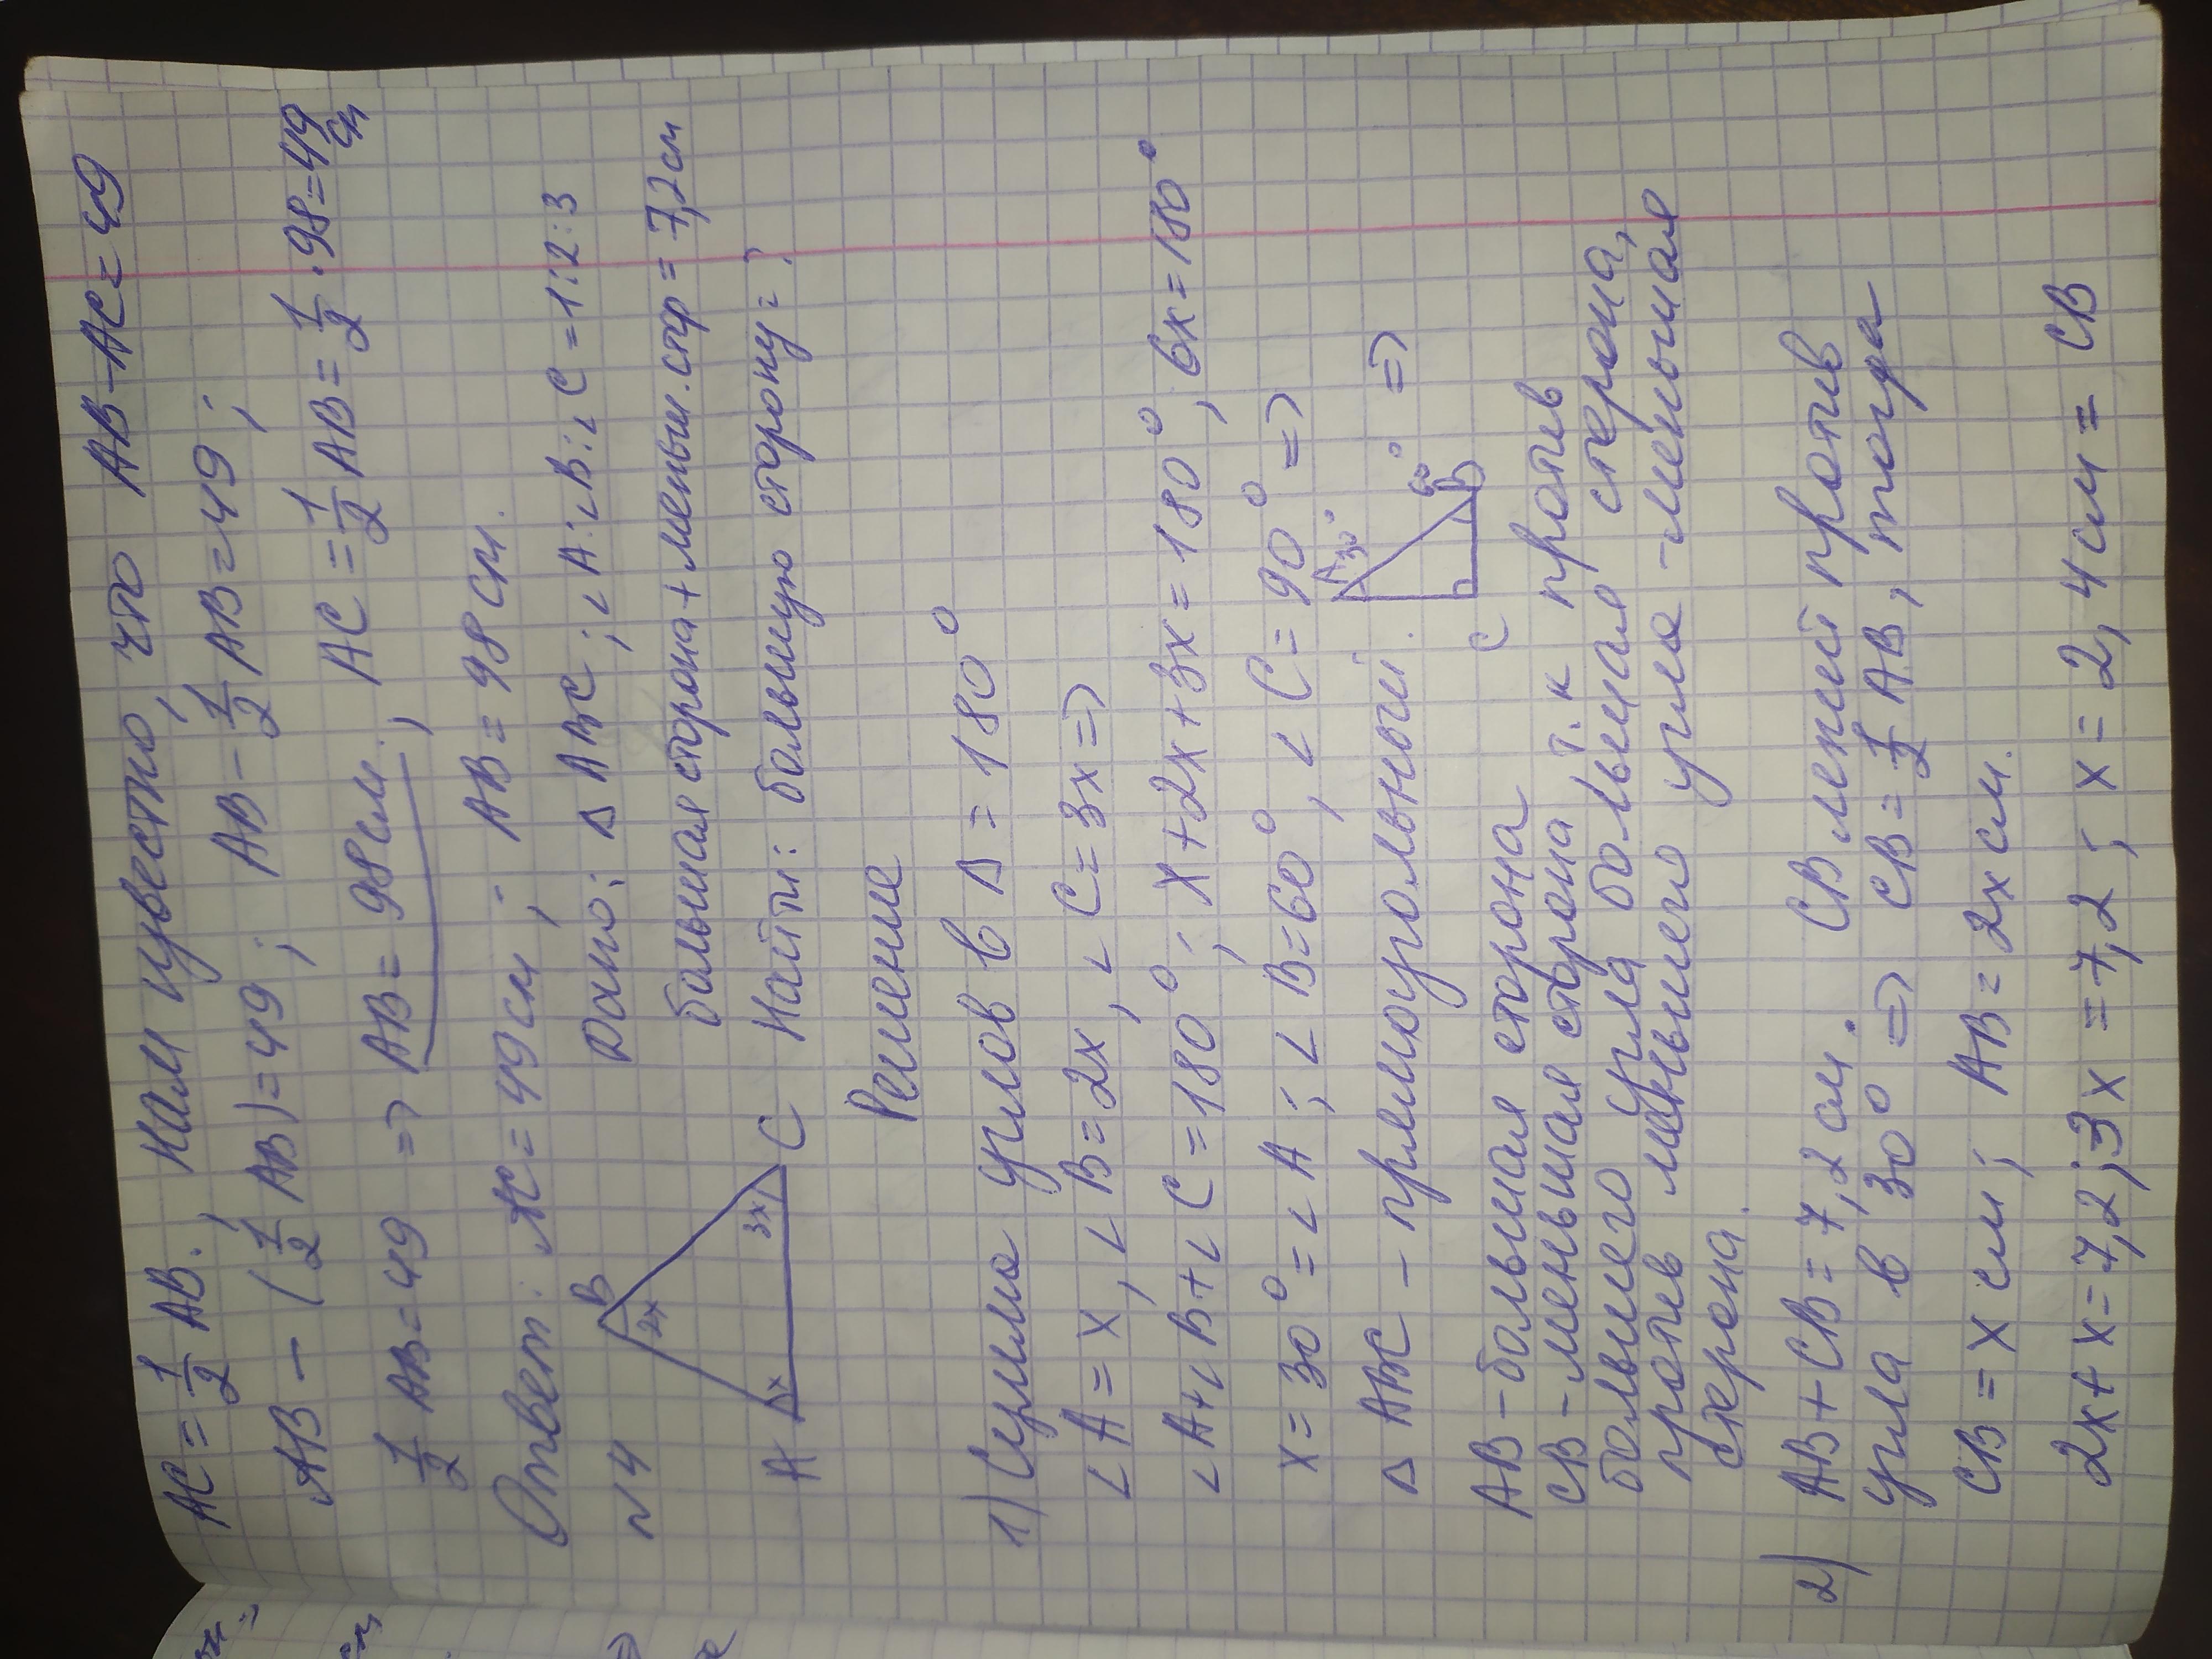 AC = 1/2 AB. Нам известно, что AB - AC = 49
AB - (1/2 AB) = 49; AB - 1/2 AB = 49;
1/2 AB = 49 => AB = 98 см.; AC = 1/2 AB = 1/2 · 98 = 49 см
Ответ: AC = 49 см; AB = 98 см.
N4
Дано: Δ ABC; ∠A:∠B:∠C = 1:2:3
большая сторона + меньш.стор = 7,2 см
Найти: большую сторону = ?
B
2x
x
3x
A
C
Решение
1) Сумма углов в Δ = 180°
∠A = x, ∠B = 2x, ∠C = 3x =>
∠A+∠B+∠C = 180°; x+2x+3x = 180°, 6x = 180°
x = 30° = ∠A; ∠B = 60°, ∠C = 90° =>
Δ ABC - прямоугольный. =>
A
30°
60°
B
C
AB - большая сторона
CB - меньшая сторона т.к против
большего угла большая сторона,
против меньшего угла - меньшая
сторона.
2) AB + CB = 7,2 см. CB лежит против
угла в 30° => CB = 1/2 AB, тогда
CB = x см; AB = 2x см.
2x + x = 7,2; 3x = 7,2; x = 2,4 см = CB